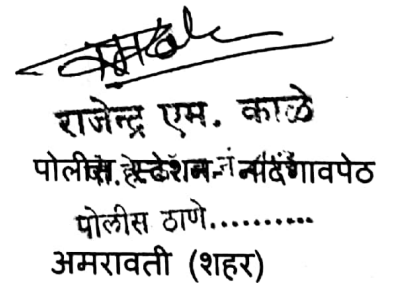 राजेन्द्र एम. काळे
पोलीस स्टेशन नांदगावपेठ
पोलीस ठाणे..........
अमरावती (शहर)